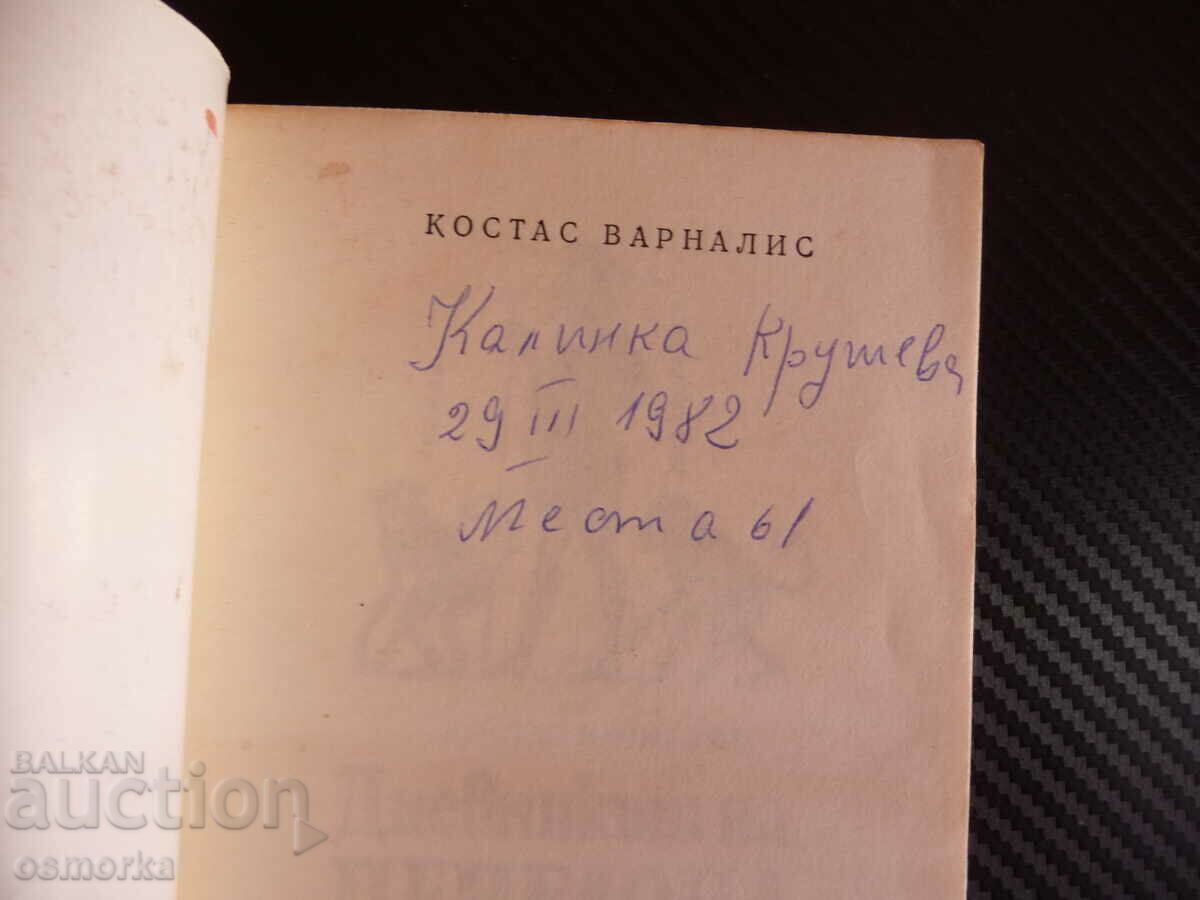 КОСТАС ВАРНАЛИС
Калинка Крушева
29 III 1982
Места 61
BALKAN
auction
osmorka